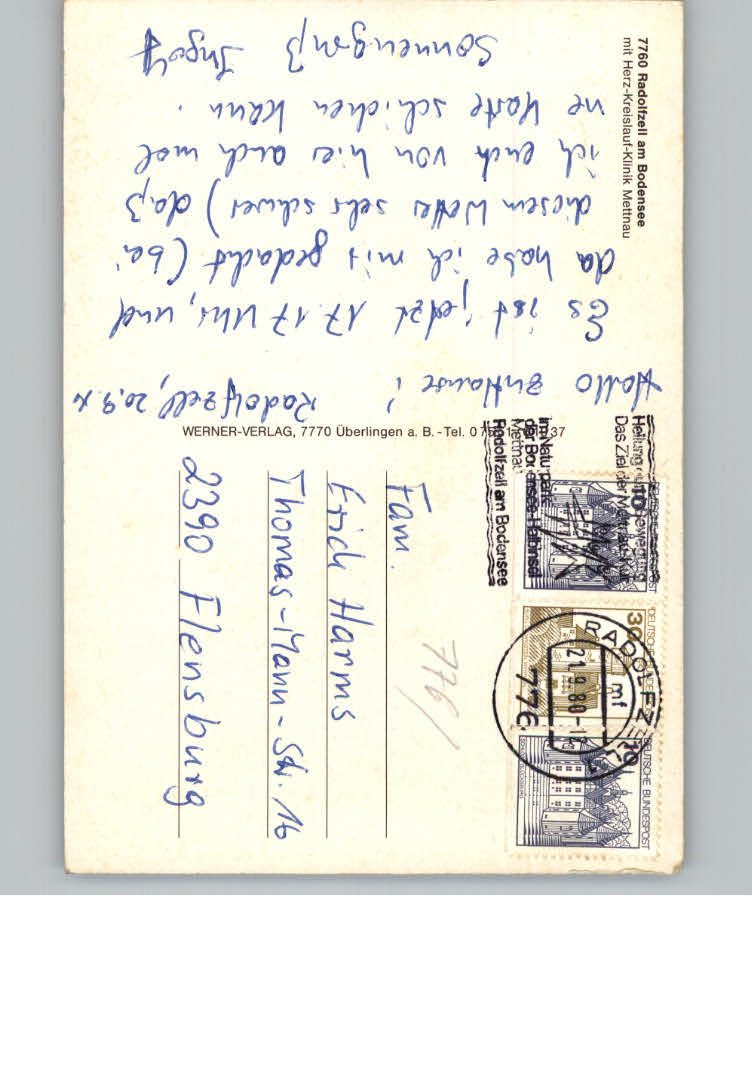 7760 Radolfzell am Bodensee
mit Herz-Kreislauf-Klinik Mettnau
Radolfzell, 20.9.
Hallo zuHause!
Es ist jetzt 17.17 Uhr, und
da habe ich mir gedacht (bei
diesem Wetter sehr schwer) daß
ich euch von hier auch mal
ne Karte schicken kann.
Sonnengruß Ingolf
WERNER-VERLAG, 7770 Überlingen a. B. - Tel. 0 37
Das Ziel der Mettnau-Kur
im Naturpark
der Bodensee-Halbinsel
Mettnau
Radolfzell am Bodensee
10
DEUTSCHE BUNDESPOST
30
DEUTSCHE BUNDESPOST
10
DEUTSCHE BUNDESPOST
RADOLFZELL
mf
21.9.80-12
776
Fam.
Erich Harms
Thomas-Mann-Str. 16
2390 Flensburg
776/